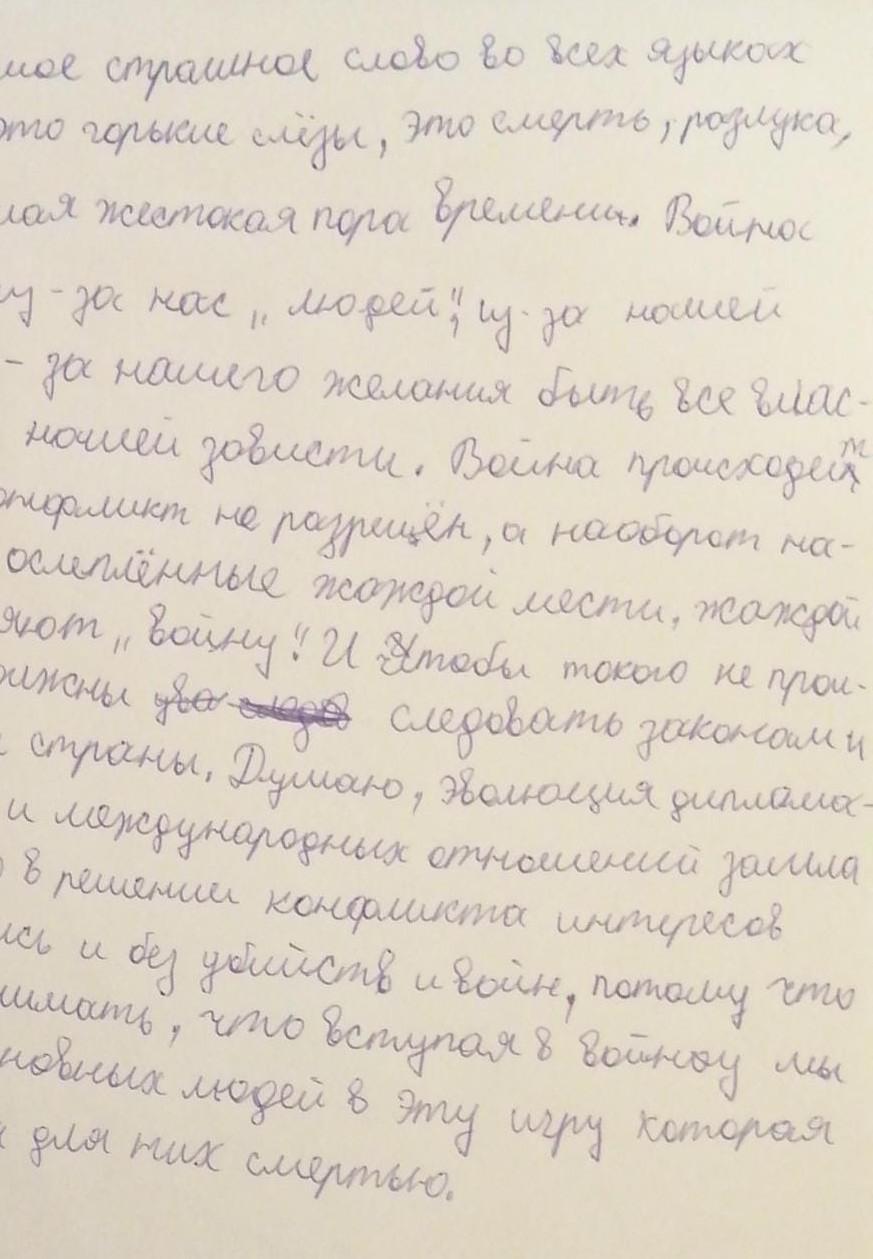 мое страшное слово во всех языках
это горькие слёзы, это смерть, разлука,
лая жестокая пора времени. Война
из-за нас „людей", из-за нашей
- за нашего желания быть все влас-
нашей зависти. Война происходит
онфликт не разрещён, а наоборот на-
ослеплённые жаждой мести, жаждой
яют „войну". И Чтобы такого не прои-
олжны следовать законам и
страны. Думаю, эволюция диплома-
и международных отношений зашла
в решении конфликта интересов
ись и без убийств и войн, потому что
нимать, что вступая в войну мы
новных людей в эту игру которая
для них смертью.